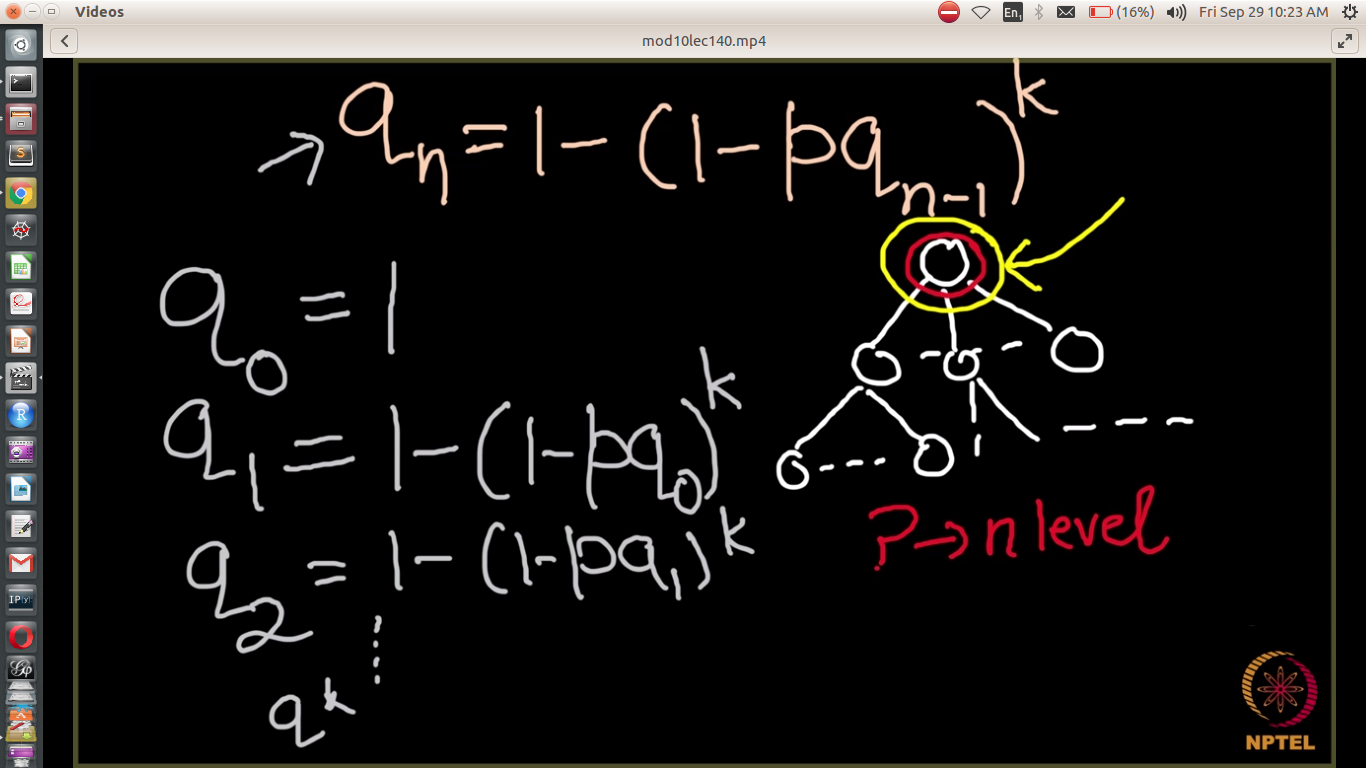 Videos
En1
(16%)
Fri Sep 29 10:23 AM
mod10lec140.mp4
→ qn = 1 - (1 - pqn-1)^k
q0 = 1
q1 = 1 - (1 - pq0)^k
q2 = 1 - (1 - pq1)^k
q^k
? → n level
NPTEL